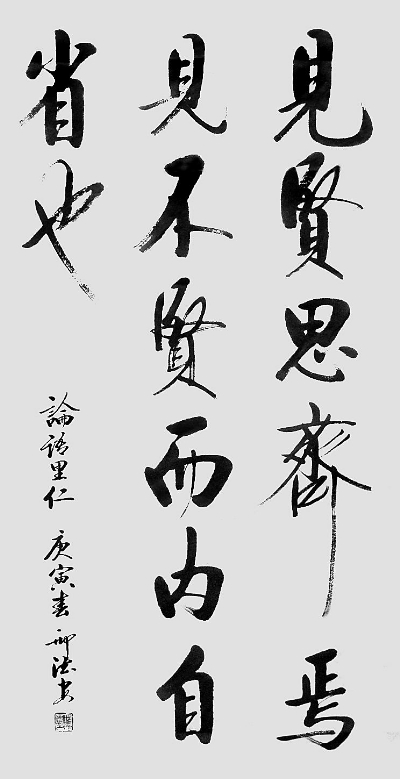 見賢思齊焉
見不賢而內自
省也
論語里仁 庚寅春